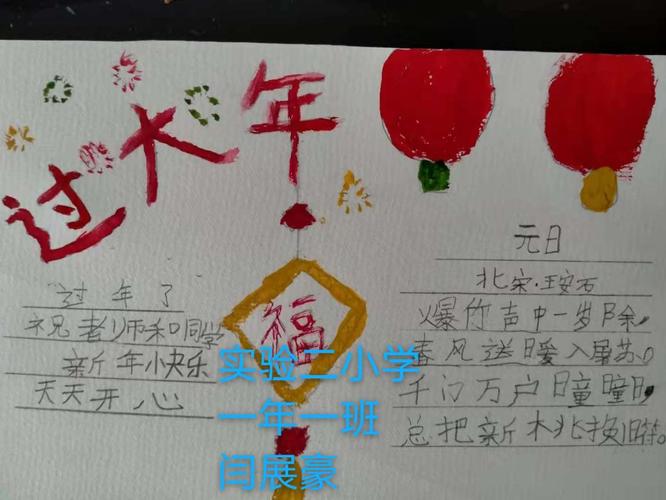 过大年
过年了
祝老师和同学
新年快乐
天天开心
福
元日
北宋·王安石
爆竹声中一岁除，
春风送暖入屠苏。
千门万户曈曈日，
总把新桃换旧符。
实验二小学
一年一班
闫展豪